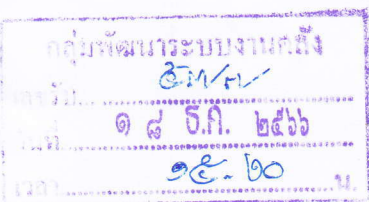 กลุ่มพัฒนาระบบงานคลัง
เลขรับ
วันที่ ๑ ๘ ธ.ค. ๒๕๖๖
เวลา ๑๕.๒๐ น.